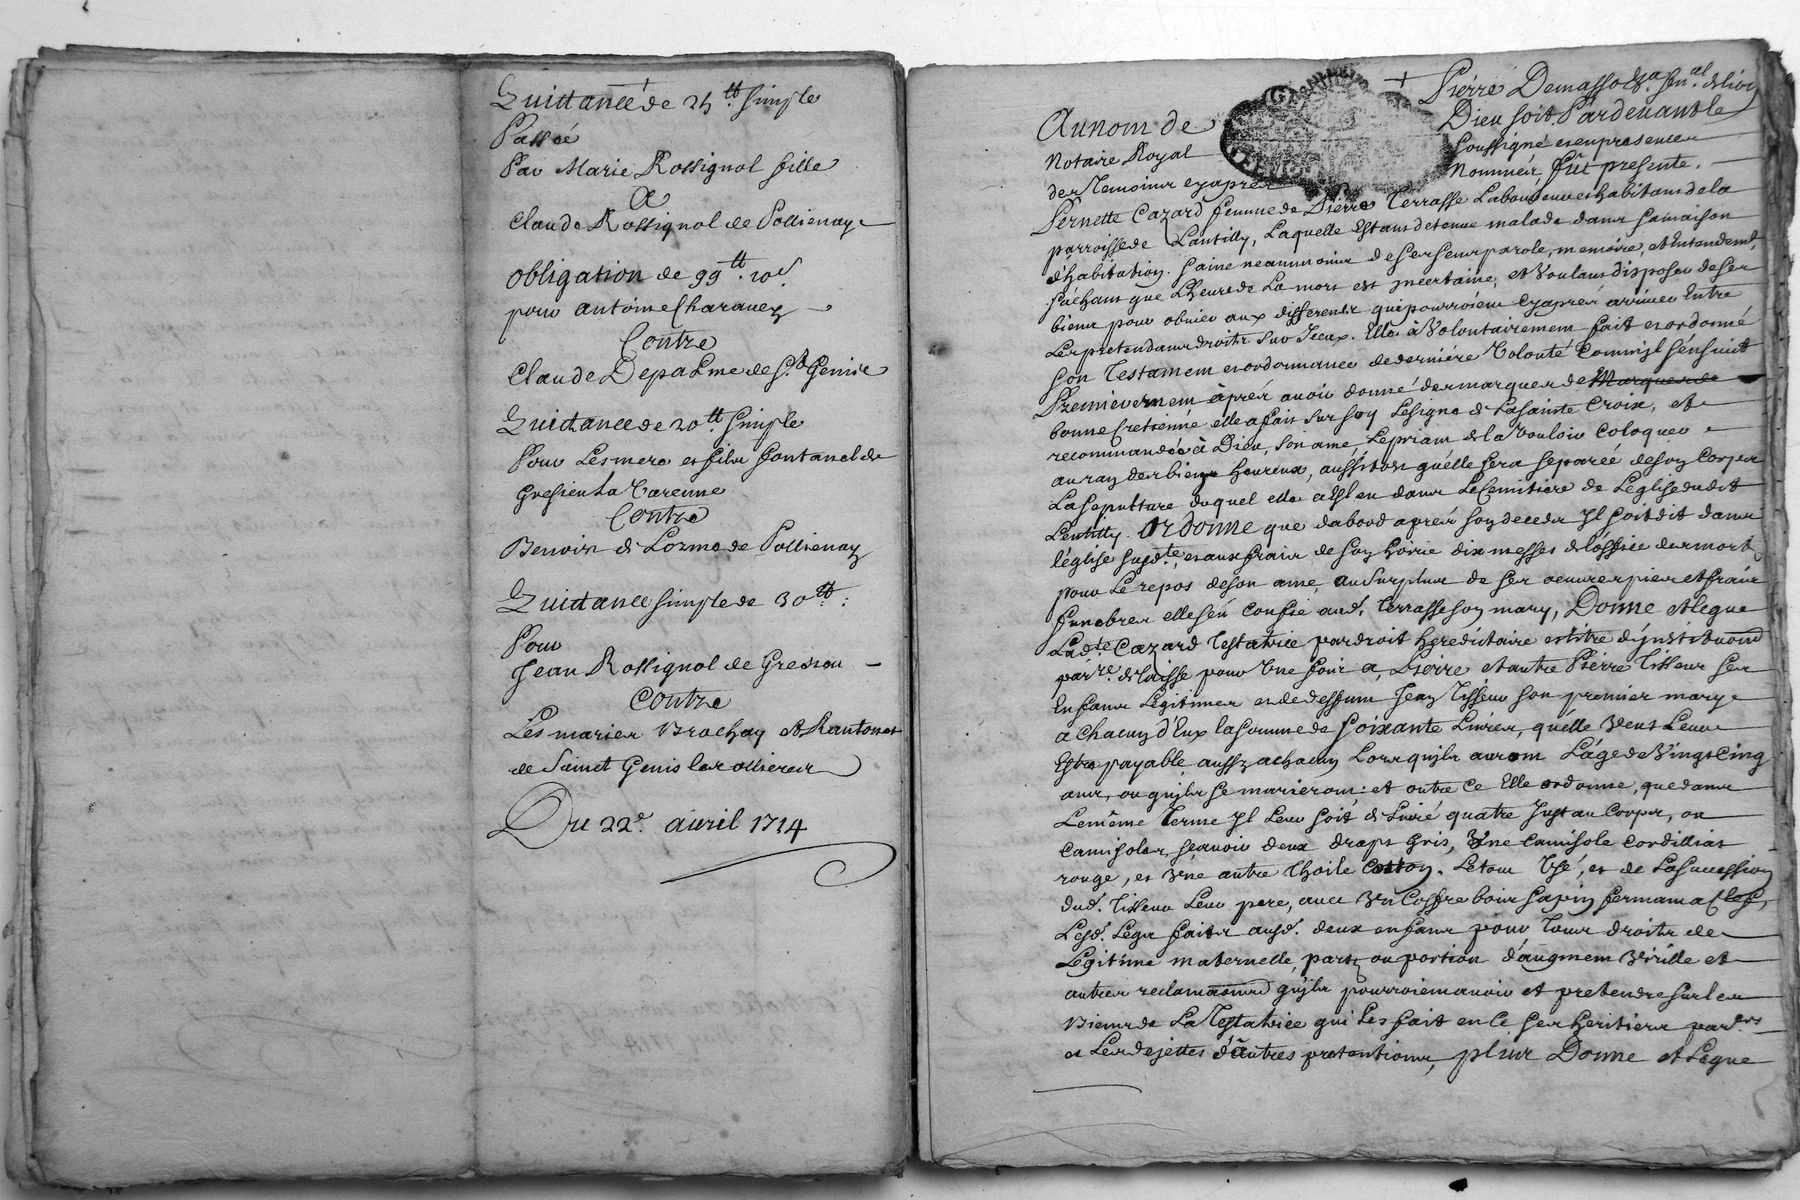 Quittance de 25 tt. simple
Passée
Par Marie Rossignol fille
A
Claude Rossignol de Pollienay
obligation de 99 tt. 10 s.
pour antoine Charavey
Contre
Claude Depalme de St. Genis
Quittance de 20 tt. simple
Pour Les mere et fils fontanel de
Gresieu La Varenne
Contre
Benoist de Lorme de Pollienay
Quittance simple de 30 tt.
Pour
Jean Rossignol de Gresieu
Contre
Les mariez Brochay et
de Saint Genis les ollieres
Du 22e. avril 1714
Pierre
Au nom de Dieu soit, Pardevant le
Notaire Royal soussigné et en presence
des Temoins cy apres Nommés, fût presente
Pernette Cazard femme de Pierre Terrasse Laboureur et habitant de la
parroisse de Lantilly, Laquelle Estant detenue malade dans sa maison
d'habitation. saine neanmoins de ses sens parole, memoire, et Entendemt.
sachant que L'heure de La mort est incertaine, et Voulant disposer de ses
biens pour obvier aux differents qui pourroient cy après arriver Entre
Les pretendants droits sur Iceux. Elle à Volontairement fait et ordonné
son Testament et ordonnance de derniére Volonté Comm'il s'ensuit
Premierement après avoir donné des marques de Marques de
bonne Cretienne elle a fait sur soy Le signe de La sainte Croix, et
recommandée à Dieu, son ame, Le priant de la Vouloir Coloquer
au rang des bien heureux, aussitost qu'elle sera separée de son Corps
La sepulture duquel elle a Esleu dans Le Cemitiere de L'eglise dudit
Lentilly. Ordonne que d'abord après son decedz Il soit dit dans
l'église susdte. et aux fraix de son hoirie dix messes de l'office des morts
pour Le repos de son ame, au surplus de ses oeuvres pies et fraix
funebres elle s'en confie aud. Terrasse son mary, Donne et legue
Ladte. Cazard Testatrice par droit hereditaire et titre d'institution
parre. delaisse pour Une fois a, Pierre et autre Pierre Tisseur ses
Enfants Legitimes et de deffunt Jean Tisseur son premier mary
a chacun d'Eux la somme de soixante Livres, qu'elle Veut Leur
Estre payable aussy a chacun Lors qu'ils auront L'âge de Vingt Cinq
ans, ou qu'ils se marieront: et outre ce Elle ordonne, que dans
Le même Terme Il Leur soit delivré quatre Just au Corps, ou
Camisoles, sçavoir deux draps gris, Une Camisole Cordilliat
rouge, et Une autre Thoile Cotton. Le tout Usé, et de La succession
dud. Tisseur Leur pere, avec Un Coffre bois sapin fermant a Clef,
Lesd. Legs faits ausd. deux enfans pour Tous droits de
Legitime maternelle, part, ou portion d'augment Virille et
autres reclamations qu'ils pourroient avoir et pretendre sur les
Biens de La Testatrice qui Les fait en Ce ses heritiers parers.
et Les dejettes d'autres pretentions, plus Donne et Legue